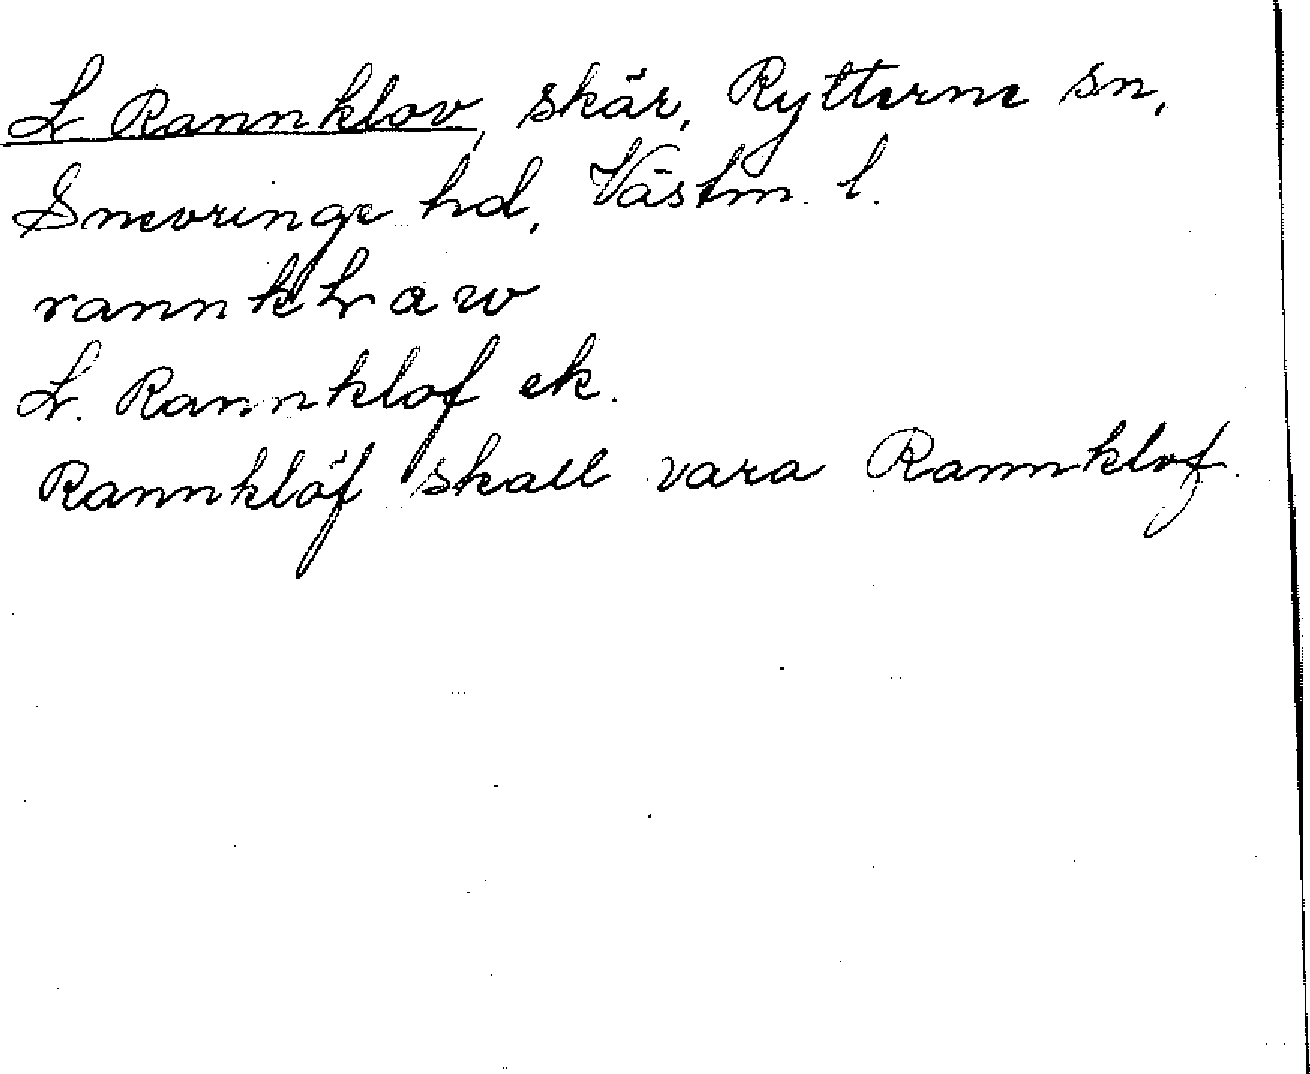 L Rannklov, skär, Rytterne sn,
Snevringe hd, Västm. l.
L. Rannklof ek.
Rannklöf skall vara Rannklof.